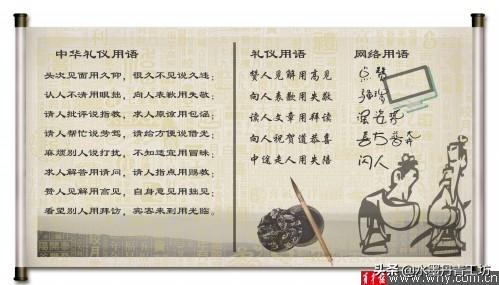 中华礼仪用语
头次见面用久仰，很久不见说久违；
认人不清用眼拙，向人表歉用失敬；
请人批评说指教，求人原谅用包涵；
请人帮忙说劳驾，请给方便说借光；
麻烦别人说打扰，不知适宜用冒昧；
求人解答用请问，请人指点用赐教；
赞人见解用高见，自身意见用拙见；
看望别人用拜访，宾客来到用光临。
礼仪用语
赞人见解用高见
向人表歉用失敬
读人文章用拜读
向人祝贺道恭喜
中途走人用失陪
网络用语
点赞
涨姿势
喜大普奔
闪人
头条 @水墨丹青工坊
www.why.com.cn